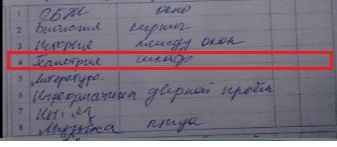 1 ОБЖ окно
2 Биология кирпич
3 История между окон
4 Геометрия шкаф
5 Литература
6 Информатика дверной проём
7 Ин. яз
8 Музыка птица